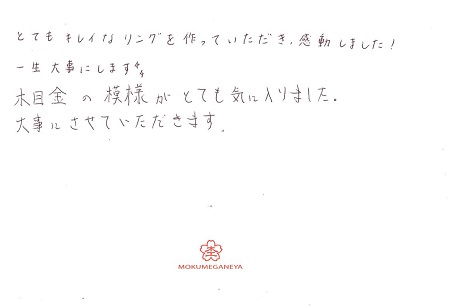 とても キレイな リングを 作っていただき、感動しました！
一生大事にします
木目金の模様がとても気に入りました。
大事にさせていただきます。
MOKUMEGANEYA